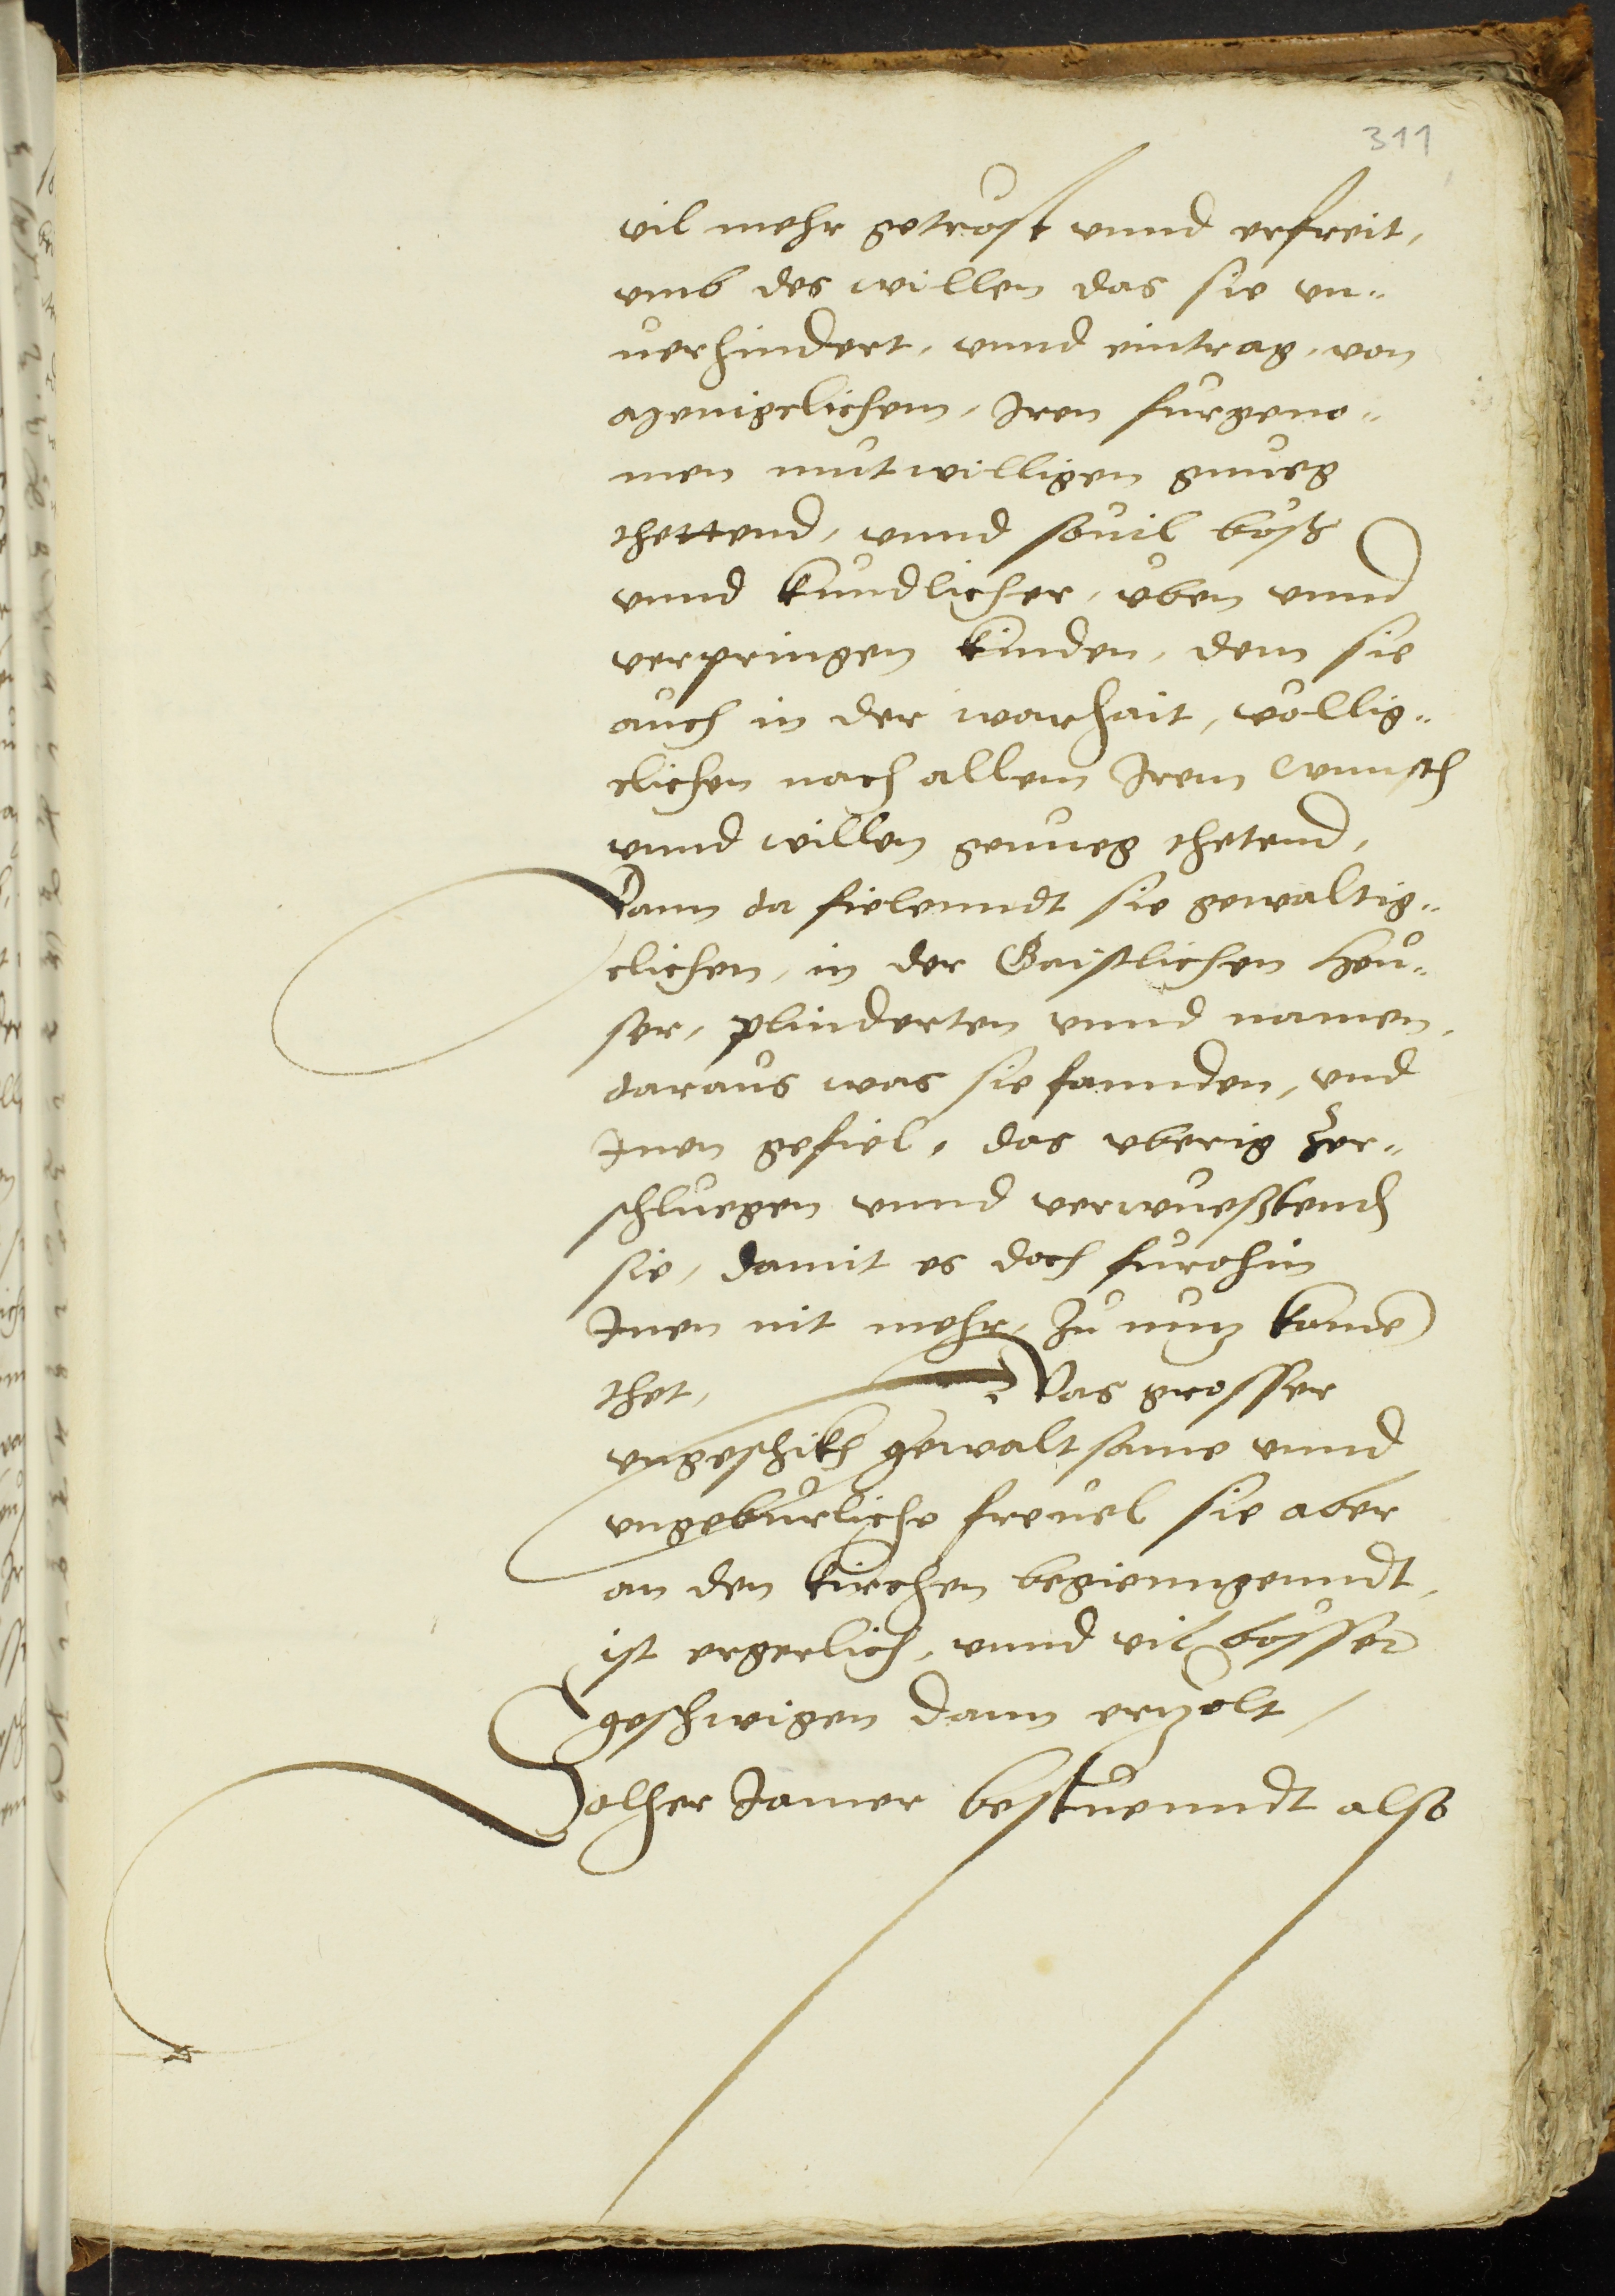 311
vil mehr getröst vnnd erfreit,
vmb des willen das sie vn¬
uerhindert, vnnd eintrag, von
menigclichem, Iren fürgeno¬
men mutwilligen gnueg
thettend, vnnd souil böß
vnnd kundlicher, üben vnnd
verpringen kinden, dem sie
auch in der warhait, völlig¬
clichen nach allem Irem wunsch
vnnd willen genueg thetend,
Dann da fielenndt sie gewaltig¬
clichen, in der Gaistlichen heü¬
ser, plinderten vnnd namen,
daraus was sie fannden, vnd
Inen gefiel, das vberig zer¬
schluegen vnnd verwueßtend
sie, damit es doch fürohin
Inen nit mehr, zu nutz komen
thet, Was grosser
vngeschikh gewaltsame vnnd
vngebürliche freuel sie aber
an den kirchen begienngenndt,
ist ergerlich, vnnd vil bösser
geschwigen dann erzelt
Solher Jamer bestuenndt also